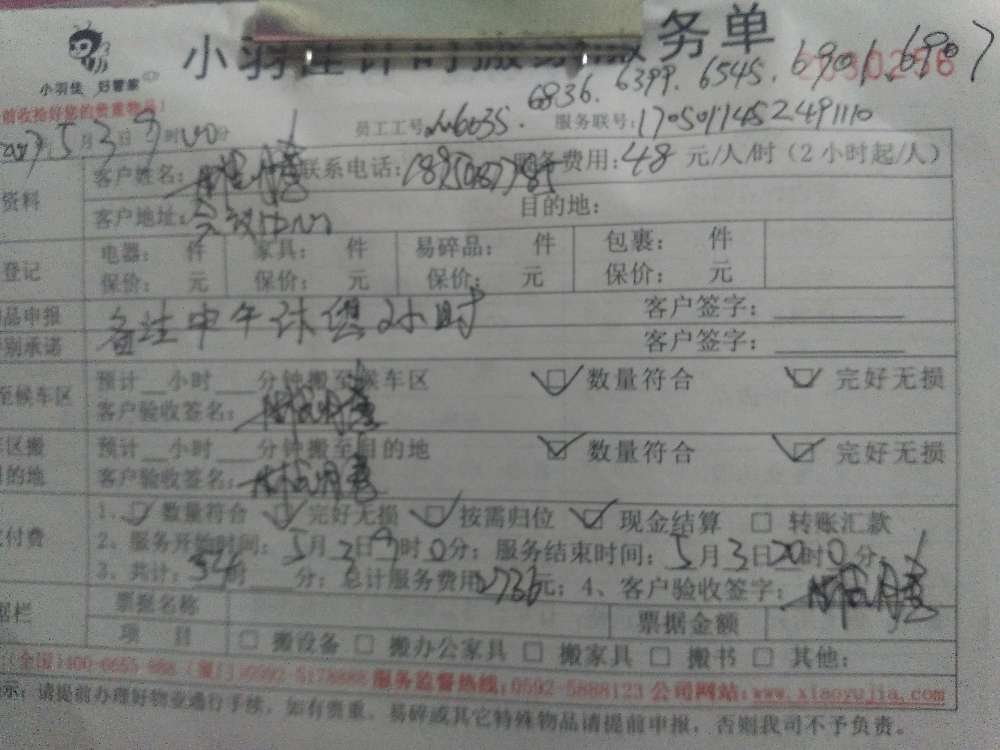 小羽佳计时搬家服务单
小羽佳 好管家
前收拾好您的贵重物品!
6836. 6399. 6545. 6901. 6907
5月3日9时00分 员工工号: 6035. 服务联号: 1705011452491110
资料 客户姓名: 联系电话: 服务费用:48元/人/时(2小时起/人)
客户地址:会议中心 目的地:
登记 电器: 件 家具: 件 易碎品: 件 包裹: 件
保价: 元 保价: 元 保价: 元 保价: 元
品申报 备注中午休息2小时 客户签字:
别承诺 客户签字:
至候车区 预计__小时___分钟搬至候车区 数量符合 完好无损
客户验收签名:
区搬 预计__小时___分钟搬至目的地 数量符合 完好无损
目的地 客户验收签名:
付费 1、数量符合 完好无损 按需归位 现金结算 转账汇款
2、服务开始时间:5月3日9时0分;服务结束时间:5月3日20时0分;
3、共计: 时 分;总计服务费用2736元;4、客户验收签字:
据栏 票据名称 票据金额
项 目 搬设备 搬办公家具 搬家具 搬书 其他:
(全国)400-6655-888 (厦门)0592-5178888 服务监督热线:0592-5888123 公司网站:www.xiaoyujia.com
示:请提前办理好物业通行手续,如有贵重、易碎或其它特殊物品请提前申报,否则我司不予负责。